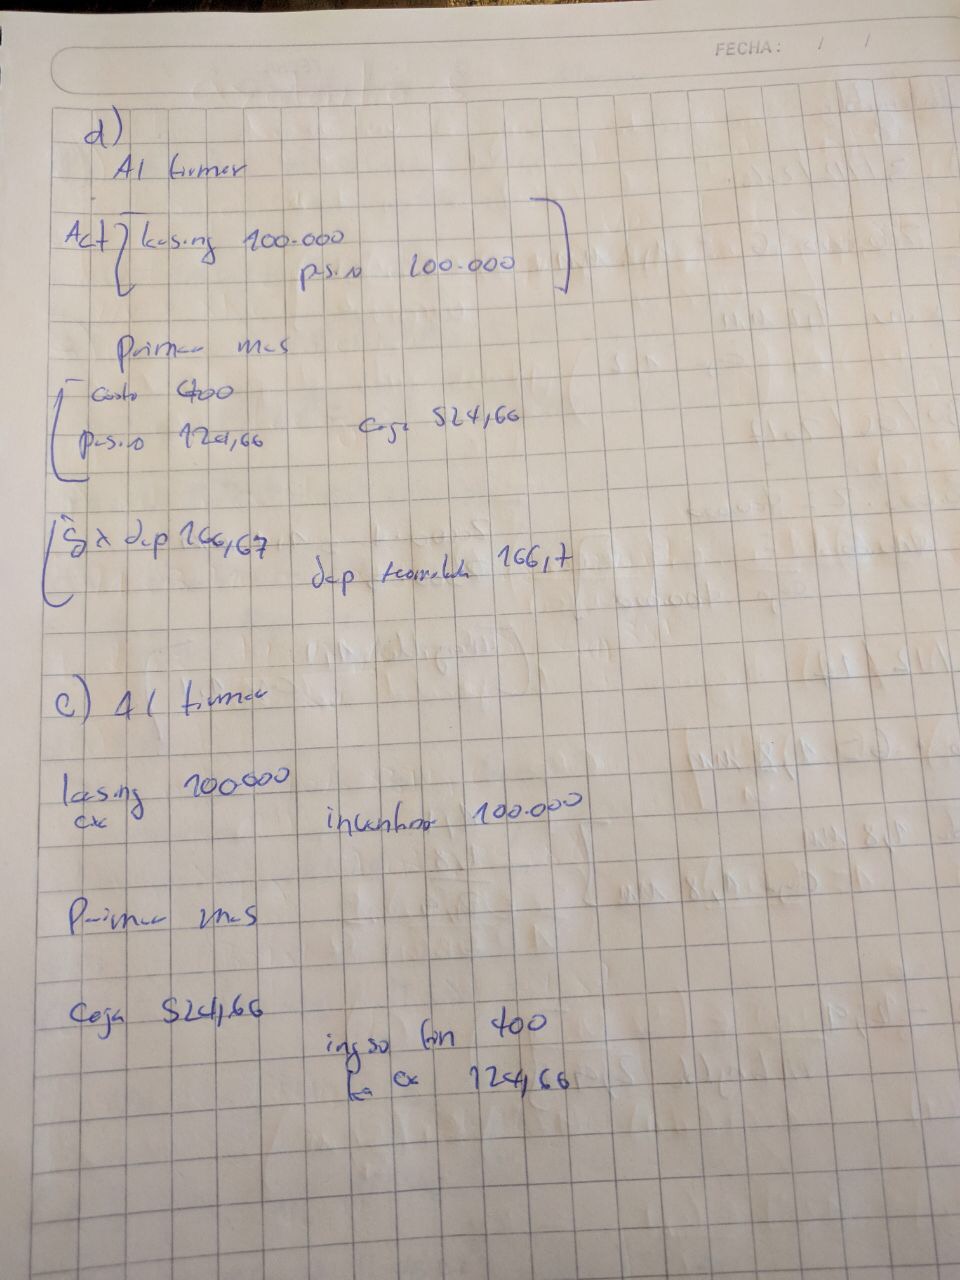 FECHA: / /
d)
Al firmar
Act leasing 100.000
pasivo 100.000
Primer mes
Gasto 400
pasivo 124,66 Caja 524,66
Gx dep 166,67
dep acumulada 166,7
e) Al firmar
leasing 100000
CxC inventario 100.000
Primer mes
Caja 524,66
ingso fin 400
124,66